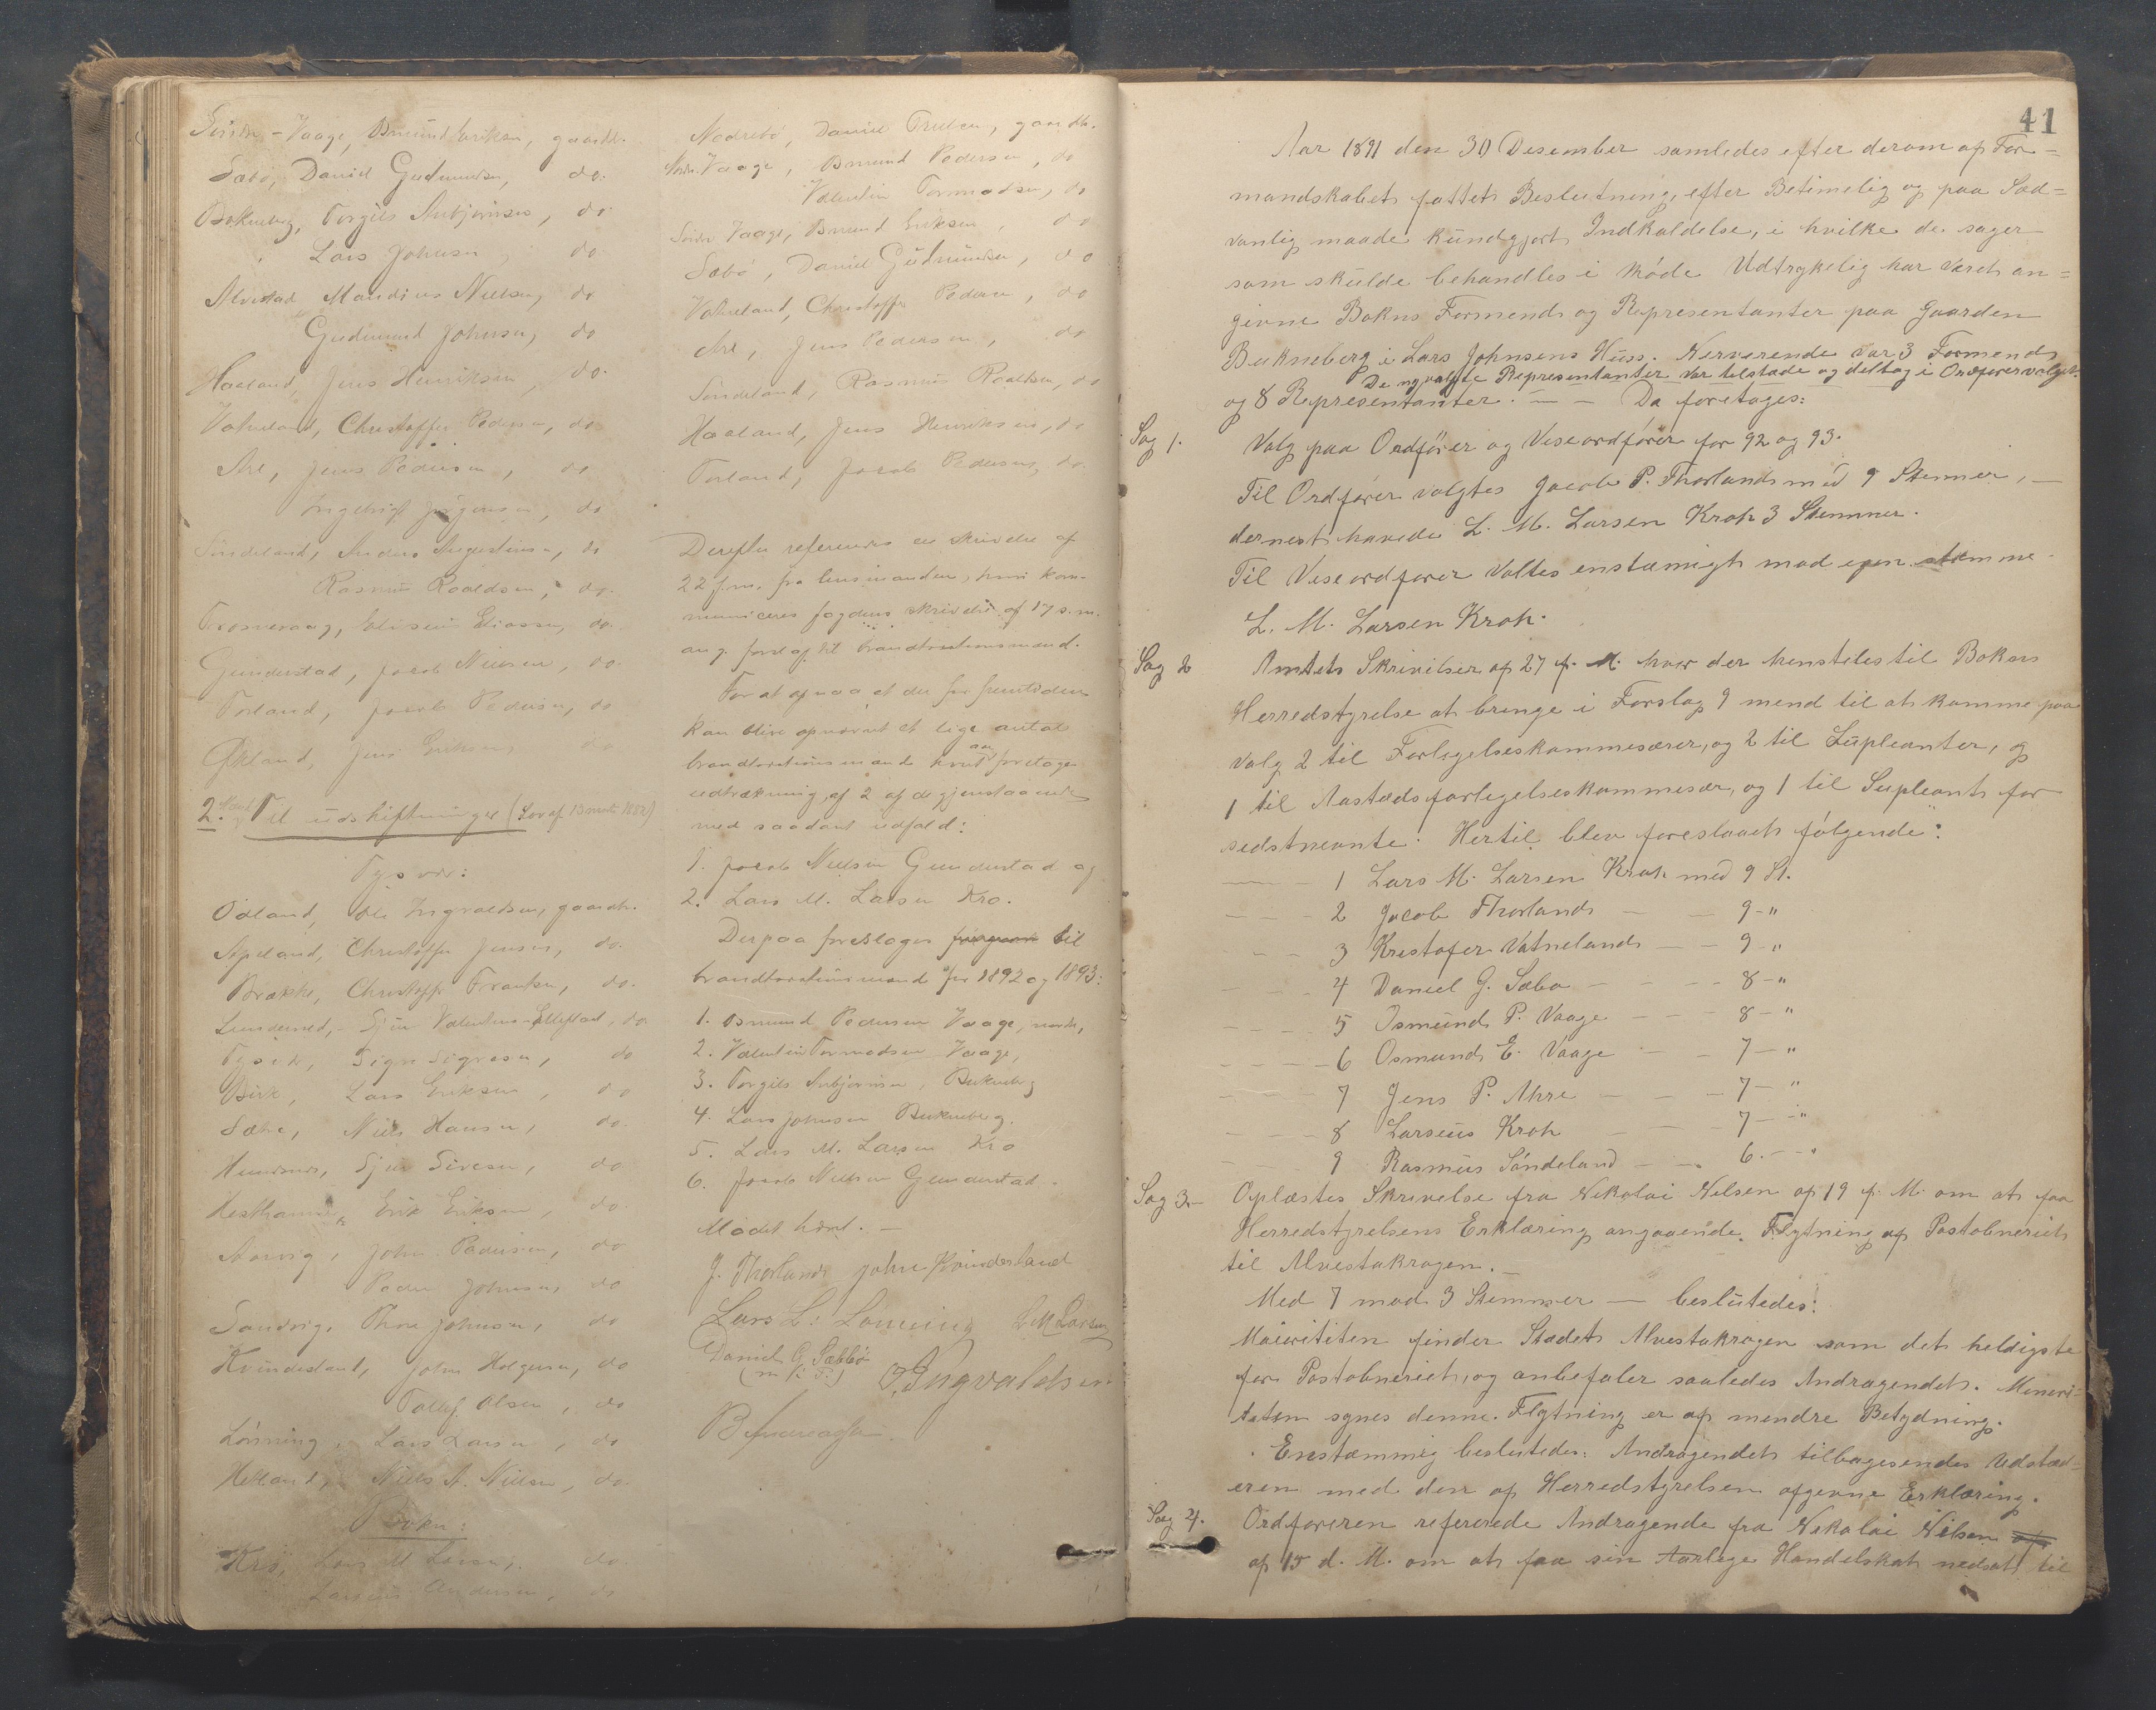 Vaage, Osmund Eriksen, gaardbr.
Sæbø, Daniel Gudmundsen, do.
Bokneberg, Torgils Asbjørnsen, do
Lars Johnsen, do
Alvestad Mandius Nielsen, do
Gudmund Johnsen, do
Haaland, Jens Henriksen, do.
Vatneland, Christoffer Pedersen, do
Are, Jens Pedersen, do
Ingebrigt Jørgensen, do
Søndeland, Anders Augustinsen, do
Rasmus Roaldsen, do.
Eliassen, do.
Gunderstad, Jacob Nielsen, do.
Torland, Jacob Pedersen, do
Økland, Jens Eriksen, do
2. Til udskiftninger (Lov af 13 1882)
Tysvær:
Odland, Ole Ingvaldsen, gaardbr.
Apeland, Christoffer Jensen, do.
Brække, Christoffer Frantsen, do.
do.
Tysvær, Sigve Sigvesen, do
Birk, Lars Eriksen, do
Sæhre, Niels Hansen, do.
Sjur Sivesen, do
Hesthammer, Erik Eriksen, do.
Aarvig, John Pedersen, do
Peder Johnsen, do
Sandvig, Thore Johnsen, do
Kvindesland, John Holgersen, do
Tollef Olsen, do
Lønning, Lars Larsen, do
Hetland, Niels A. Nielsen, do.
Bokn:
Kro, Lars M. Larsen, do.
Larsens Andersen, do
Nodrebø, Daniel gaardb.
Nordr. Vaage, Osmund Pedersen, do
Valentin Tormodsen, do
Søndr Vaage, Osmund Eriksen, do
Sæbø, Daniel Gudmundsen, do
Vatneland, Christoffer Pedersen, do
Are, Jens Pedersen, do
Søndeland, Rasmus Roaldsen, do
Haaland, Jens Henriksen, do
Torland, Jacob Pedersen, do.
Derefter refereredes en skrivelse af
22 f.m. fra lensmanden, hvori kom-
municeres fogdens skrivelse af 17 s.m.
ang. forslag til brandtaxtionsmænd.
For at opnaa at der for fremtiden
kan blive opnævnt et lige antal
brandtaxtionsmænd hvert aar foretages
udtrækning af 2 af de gjenstaaende
med saadant udfald:
1. Jacob Nielsen Gunderstad og
2. Lars M. Larsen Kro.
Derpaa foreslages til
brandtaxtionsmænd for 1892 og 1893:
1. Osmund Pedersen Vaage, nordr.,
2. Valentin Tormodsen Vaage,
3. Torgils Asbjørnsen, Bukneberg
4. Lars Johnsen Bukneberg.
5. Lars M. Larsen Kro
6. Jacob Nielsen Gunderstad.
Mødet hævet. —
J. Thorland John Kvindesland
Lars L. Lønning L M Larsen
Daniel G. Sæbbø
(m. P. P.) O. Ingvaldsen
B Andreassen
41
Aar 1891 den 30 Desember samledes efter derom af For=
mandskabet fattet Beslutning, efter Betimelig og paa Sæd=
vanlig maade kundgjort Indkaldelse, i hvilke de sager
som skulde behandles i Møde Udtrykelig har været an=
givne Bokns Formend og Representanter paa Gaarden
Bukneberg i Lars Johnsens Huss. Nerverende var 3 Formend
De nyvalgte Representanter var tilstæde og deltog i Ordførervalget.
og 8 Representanter. — — Da foretages:
Sag 1. Valg paa Ordfører og Viseordfører for 92 og 93.
Til Ordfører valgtes Jacob P. Thorland med 9 Stemmer, —
dernest havede L. M. Larsen Kroh 3 Stemmer.
Til Viseordfører valtes enstæmigh mod egen stemme
L. M. Larsen Kroh.
Sag 2 Amtets Skrivelser af 27 f. M. hvor der hensteles til Bokns
Herredstyrelse at bringe i Forslag 9 mend til at komme paa
valg 2 til Forligelseskommesærer, og 2 til Supleanter, og
1 til Aastædsforligelseskommesær, og 1 til Supleant for
sedstnevnte. Hertil blev foreslaaet følgende:
1 Lars M. Larsen Kroh med 9 St.
2 Jacob Thorland — — 9 - "
3 Krestofer Vatneland — — 9 - "
4 Daniel G. Sæbø — — — 8 - "
5 Osmund P. Vaage — — — 8 - "
6 Osmund E. Vaage — — 7 - "
7 Jens P. Ahre — — — 7 - "
8 Larseus Kroh — — — 7 - "
9 Rasmus Søndeland — — 6. - "
Sag 3. Oplæstes Skrivelse fra Nekolai Nilsen af 19 f. M. om at faa
Herredstyrelsens Erklæring angaaende Flytning af Postobneriet
til Alvestakragen. —
Med 7 mod 3 Stemmer — beslutedes:
Maioritèten finder Stædet Alvestakragen som det heldigste
for Postobneriet, og anbefaler saaledes Andragendet. Minori-
tæten synes denne Flytning er af mendre Betydning.
Enstæmmig beslutedes: Andragendet tilbagesendes Udstæd-
eren med den af Herredstyrelsen afgevne Erklæring.
Sag 4. Ordføreren refererede Andragende fra Nekolai Nilsen af
af 15 d. M. om at faa sin Aarlege Handelskat nedsat til